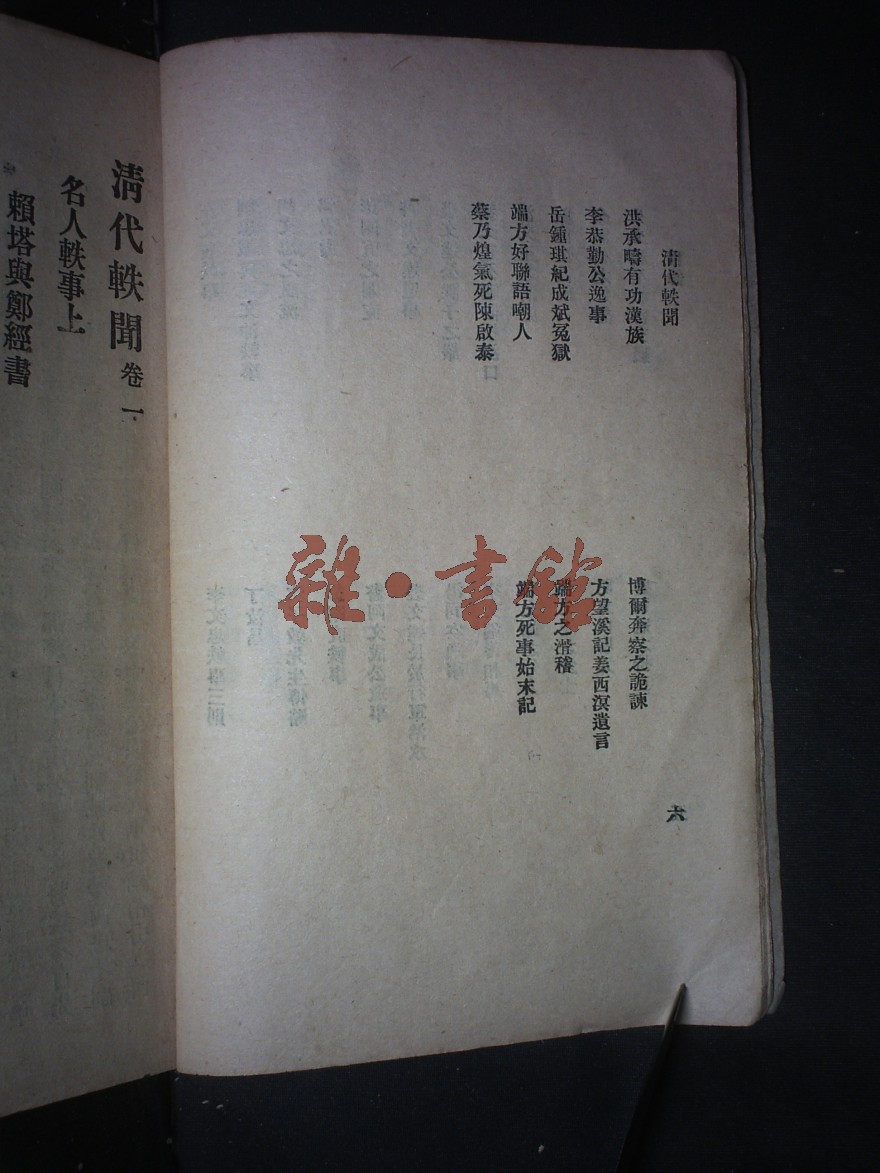 清代軼聞
洪承疇有功漢族
博爾奔察之詭諫
李恭勤公逸事
方望溪記姜西溟遺言
岳鍾琪紀成斌冤獄
端方之滑稽
端方好聯語嘲人
端方死事始末記
蔡乃煌氣死陳啟泰
六
雜·書館
清代軼聞 卷一
名人軼事上
賴塔與鄭經書